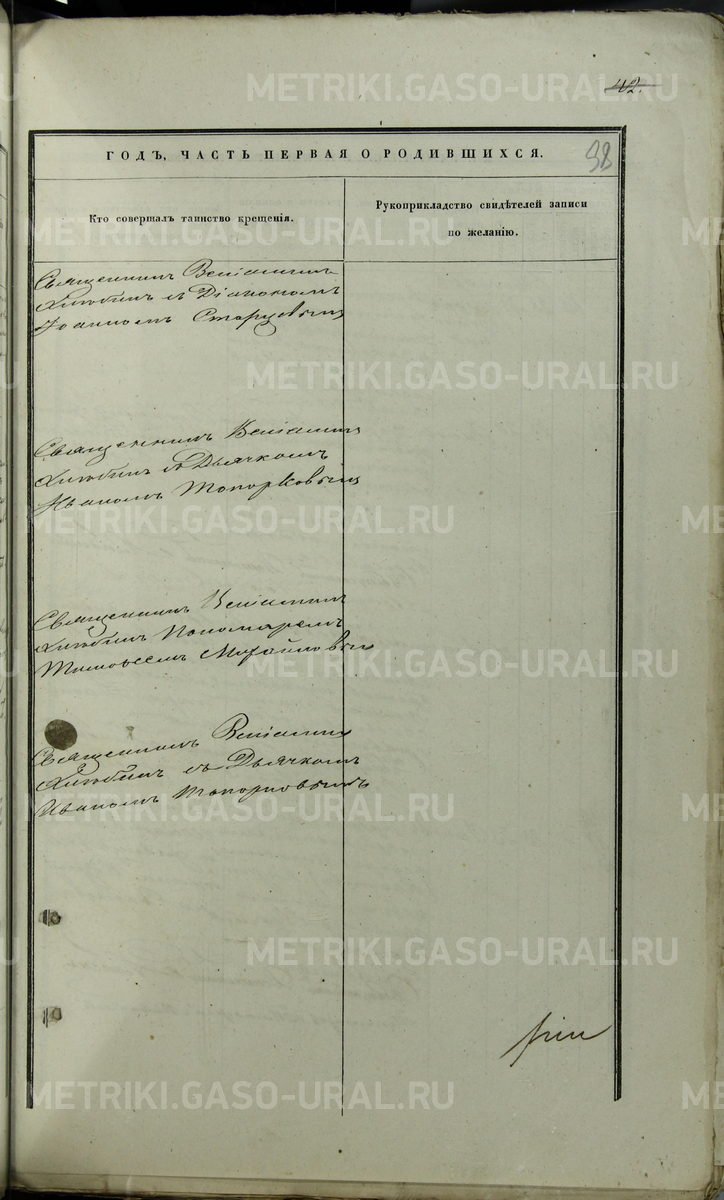 42.
ГОДЪ, ЧАСТЬ ПЕРВАЯ О РОДИВШИХСЯ.
38
Кто совершалъ таинство крещенія.
Рукоприкладство свидѣтелей записи
по желанію.
Священникъ Веніаминъ
съ Діакономъ
Іоанномъ Старцевымъ
Священникъ Веніаминъ
съ Дьячкомъ
Иваномъ Топорковымъ
Священникъ Веніаминъ
Пономаремъ
Михайловымъ
Священникъ Веніаминъ
съ Дьячкомъ
Иваномъ Топорковымъ
METRIKI.GASO-URAL.RU